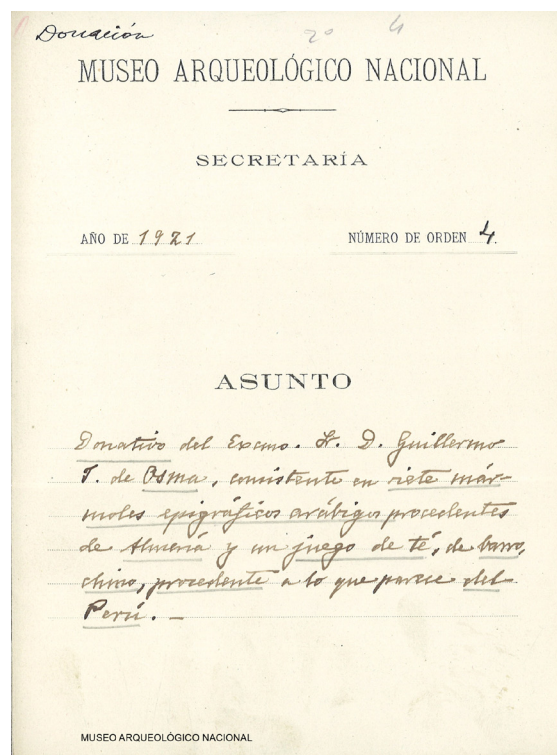 Donación
2º 4
MUSEO ARQUEOLÓGICO NACIONAL
SECRETARÍA
AÑO DE 1921 NÚMERO DE ORDEN 4.
ASUNTO
Donativo del Excmo. Sr. D. Guillermo
J. de Osma, consistente en siete már-
moles epigráficos arábigos procedentes
de Almería y un juego de té, de barro,
chino, procedente a lo que parece del
Perú. —
MUSEO ARQUEOLÓGICO NACIONAL